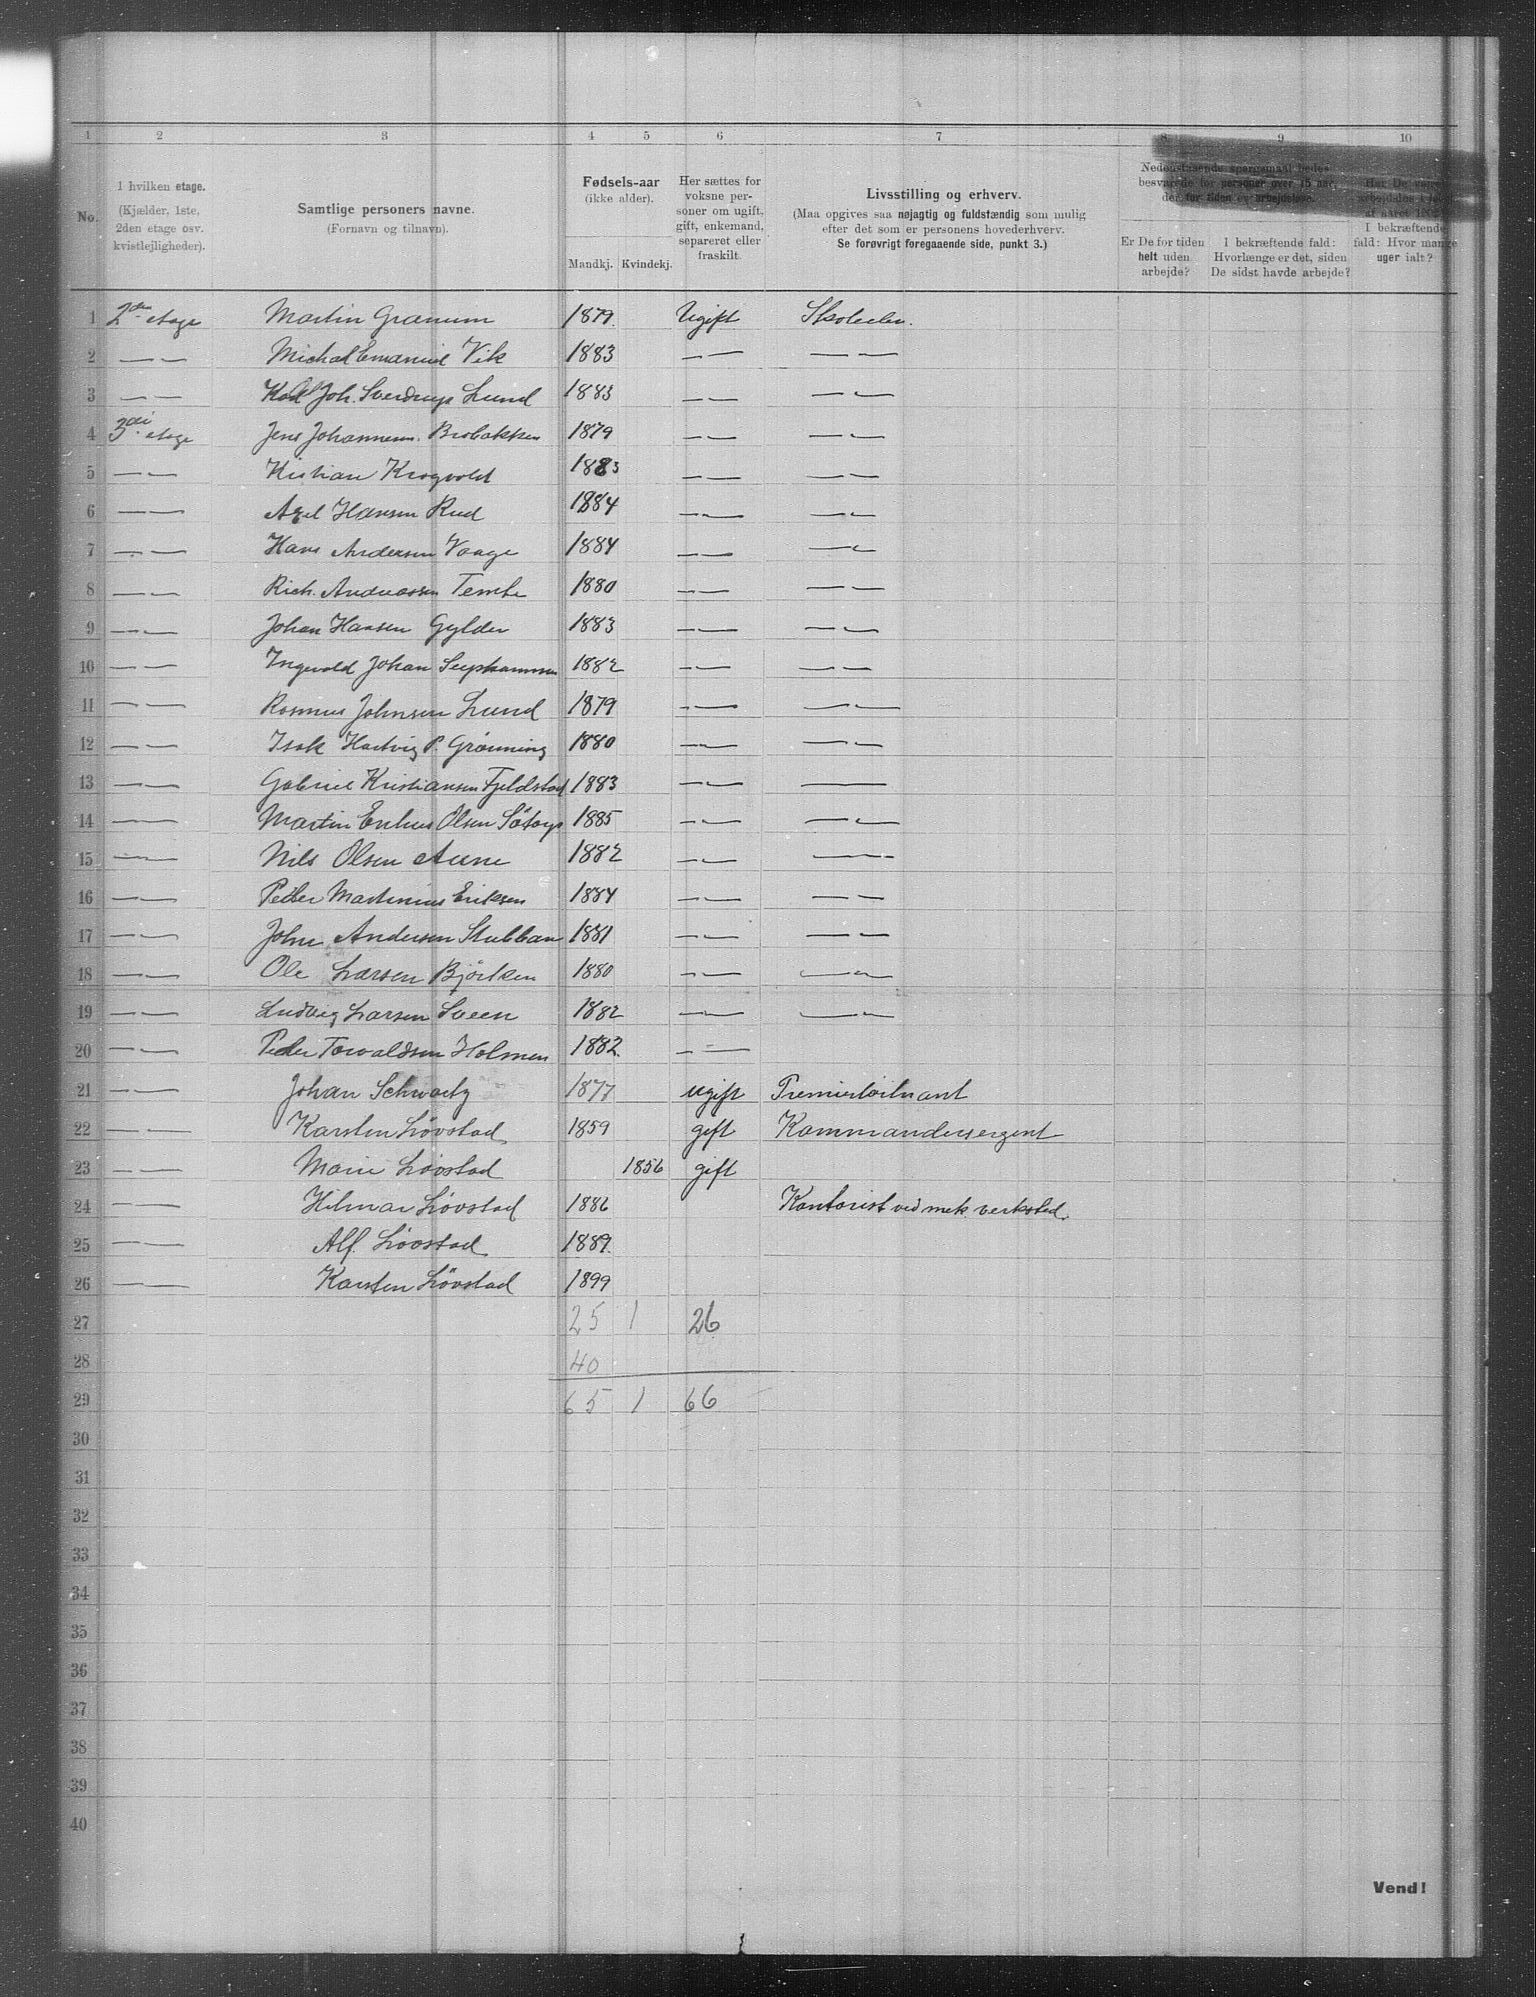 1 2 3 4 5 6 7 8 9 10
No.
I hvilken etage.
(Kjælder, 1ste,
2den etage osv.
kvistlejligheder).
Samtlige personers navne.
(Fornavn og tilnavn).
Fødsels-aar
(ikke alder).
Mandkj. Kvindekj.
Her sættes for
voksne per-
soner om ugift,
gift, enkemand,
separeret eller
fraskilt.
Livsstilling og erhverv.
(Maa opgives saa nøjagtig og fuldstændig som mulig
efter det som er personens hovederhverv.
Se forøvrigt foregaaende side, punkt 3.)
Nedenstaaende spørgsmaal bedes
besvarede for personer over 15 aar,
der for tiden er arbejdsløse.
Er De for tiden
helt uden
arbejde?
I bekræftende fald:
Hvorlænge er det, siden
De sidst havde arbejde?
Har De været
I bekræftende
fald: Hvor mange
uger ialt?
1 2den etage Martin Granum 1879 Ugift Skoleelev.
2 — — Michal Emanuel Vik 1883 — — — —
3 — — Joh. Sverdrup Lund 1883 — — — —
4 3die etage Jens Johannesen Brobakken 1879 — — — —
5 — — Kristian Krogvold 1883 — — — —
6 — — Axel Hansen Rud 1884 — — — —
7 — — Hans Andersen Vaage 1884 — — — —
8 — — Rich. Andreassen Tembe 1880 — — — —
9 — — Johan Hansen Gylder 1883 — — — —
10 — — Ingvald Johan 1882 — — — —
11 — — Rasmus Johnsen Lund 1879 — — — —
12 — — Isak Hartvig P. Grønning 1880 — — — —
13 — — Gabriel Kristiansen Fjeldstad 1883 — — —
14 — — Martin Olsen 1885 — — — —
15 — — Nils Olsen Aune 1882 — — — —
16 — — Peder Martinius Eriksen 1884 — — — —
17 — — John Andersen Stubban 1881 — — — —
18 — — Ole Larsen Bjørken 1880 — — — —
19 — — Ludvig Larsen Sveen 1882 — — — —
20 — — Peder Torvaldsen Holmen 1882 — —
21 — — Johan Schwartz 1877 ugift Premierløitnant
22 — — Karsten Løvstad 1859 gift Kommandersergent
23 — — Marie Løvstad 1856 gift
24 — — Hilmar Løvstad 1886 Kontorist ved mek. verksted.
25 — — Alf. Løvstad 1889
26 — — Karsten Løvstad 1899
27 25 1 26
28 40
29 65 1 66
30
31
32
33
34
35
36
37
38
39
40
Vend!